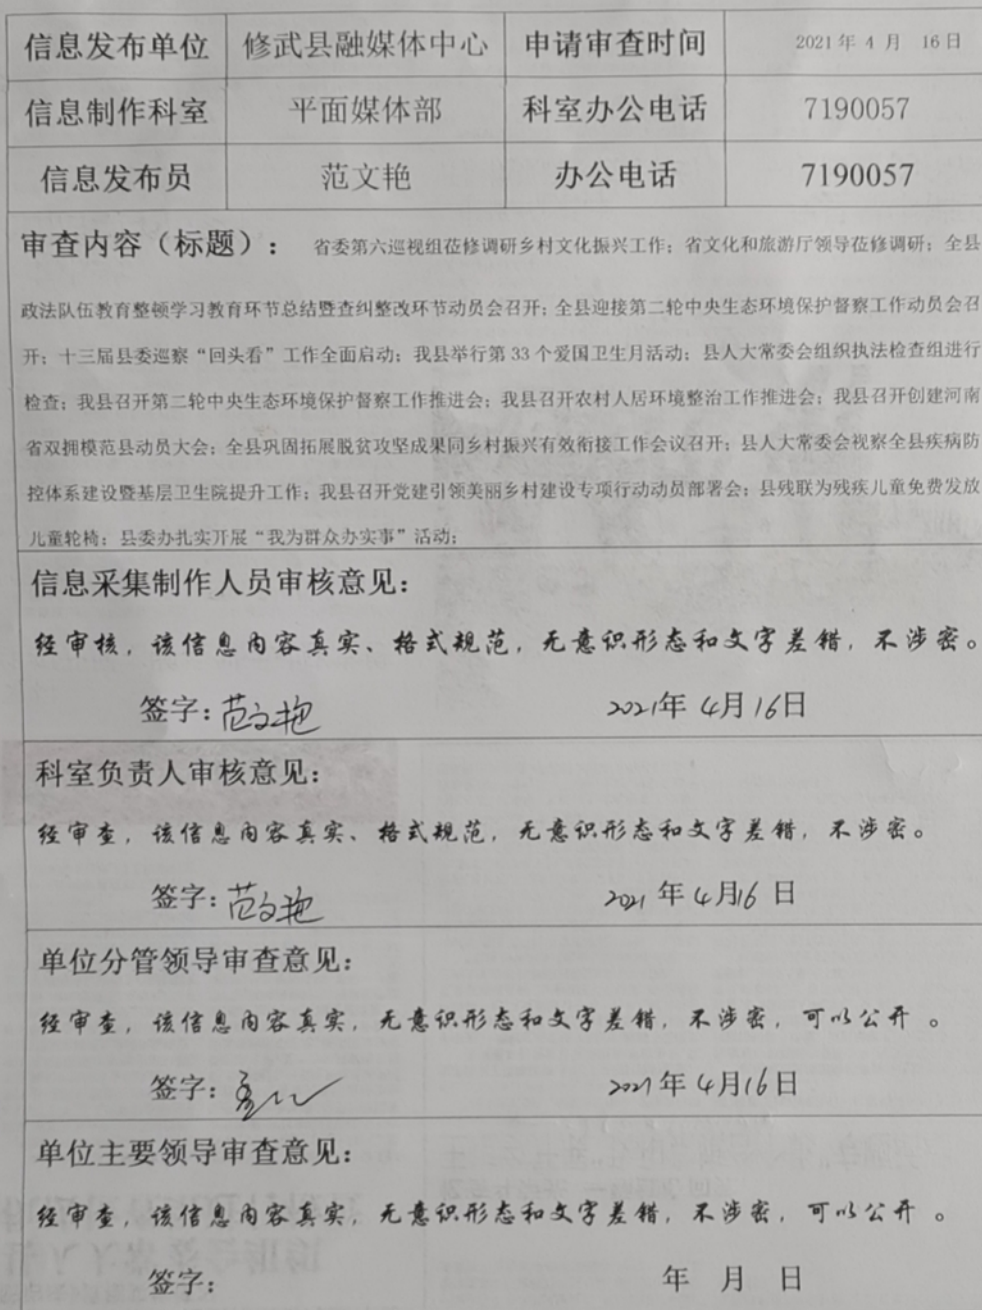 信息发布单位 修武县融媒体中心 申请审查时间 2021年 4 月 16日
信息制作科室 平面媒体部 科室办公电话 7190057
信息发布员 范文艳 办公电话 7190057
审查内容（标题）： 省委第六巡视组莅修调研乡村文化振兴工作；省文化和旅游厅领导莅修调研；全县
政法队伍教育整顿学习教育环节总结暨查纠整改环节动员会召开；全县迎接第二轮中央生态环境保护督察工作动员会召
开；十三届县委巡察“回头看”工作全面启动；我县举行第 33 个爱国卫生月活动；县人大常委会组织执法检查组进行
检查；我县召开第二轮中央生态环境保护督察工作推进会；我县召开农村人居环境整治工作推进会；我县召开创建河南
省双拥模范县动员大会；全县巩固拓展脱贫攻坚成果同乡村振兴有效衔接工作会议召开；县人大常委会视察全县疾病防
控体系建设暨基层卫生院提升工作；我县召开党建引领美丽乡村建设专项行动动员部署会；县残联为残疾儿童免费发放
儿童轮椅；县委办扎实开展“我为群众办实事”活动；
信息采集制作人员审核意见：
经审核，该信息内容真实、格式规范，无意识形态和文字差错，不涉密。
签字：范文艳 2021年 4月16日
科室负责人审核意见：
经审查，该信息内容真实、格式规范，无意识形态和文字差错，不涉密。
签字：范文艳 2021 年 4月16 日
单位分管领导审查意见：
经审查，该信息内容真实，无意识形态和文字差错，不涉密，可以公开 。
签字： 2021年 4月16日
单位主要领导审查意见：
经审查，该信息内容真实，无意识形态和文字差错，不涉密，可以公开 。
签字： 年 月 日